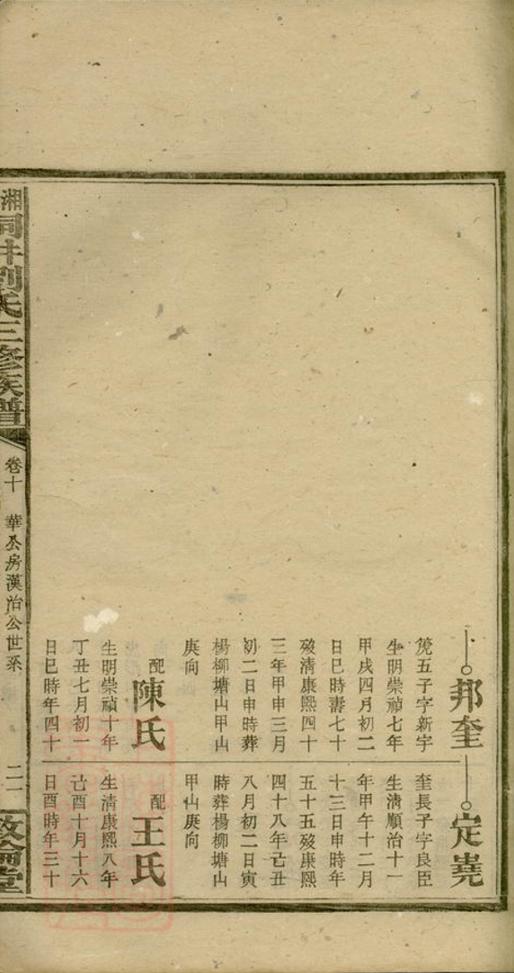 邦奎
𥫣五子字新宇
生明崇禎七年
甲戌四月初二
日巳時壽七十
歿清康熙四十
三年甲申三月
初二日申時葬
楊柳塘山甲山
庚向
配
陳氏
生明崇禎十年
丁丑七月初一
日巳時年四十
定嶤
奎長子字良臣
生清順治十一
年甲午十二月
十三日申時年
五十五歿康熙
四十八年己丑
八月初二日寅
時葬楊柳塘山
甲山庚向
配
王氏
生清康熙八年
己酉十月十六
日酉時年三十
湘洞井劉氏三修族譜
卷十 華公房漢治公世系
二一
敦倫堂